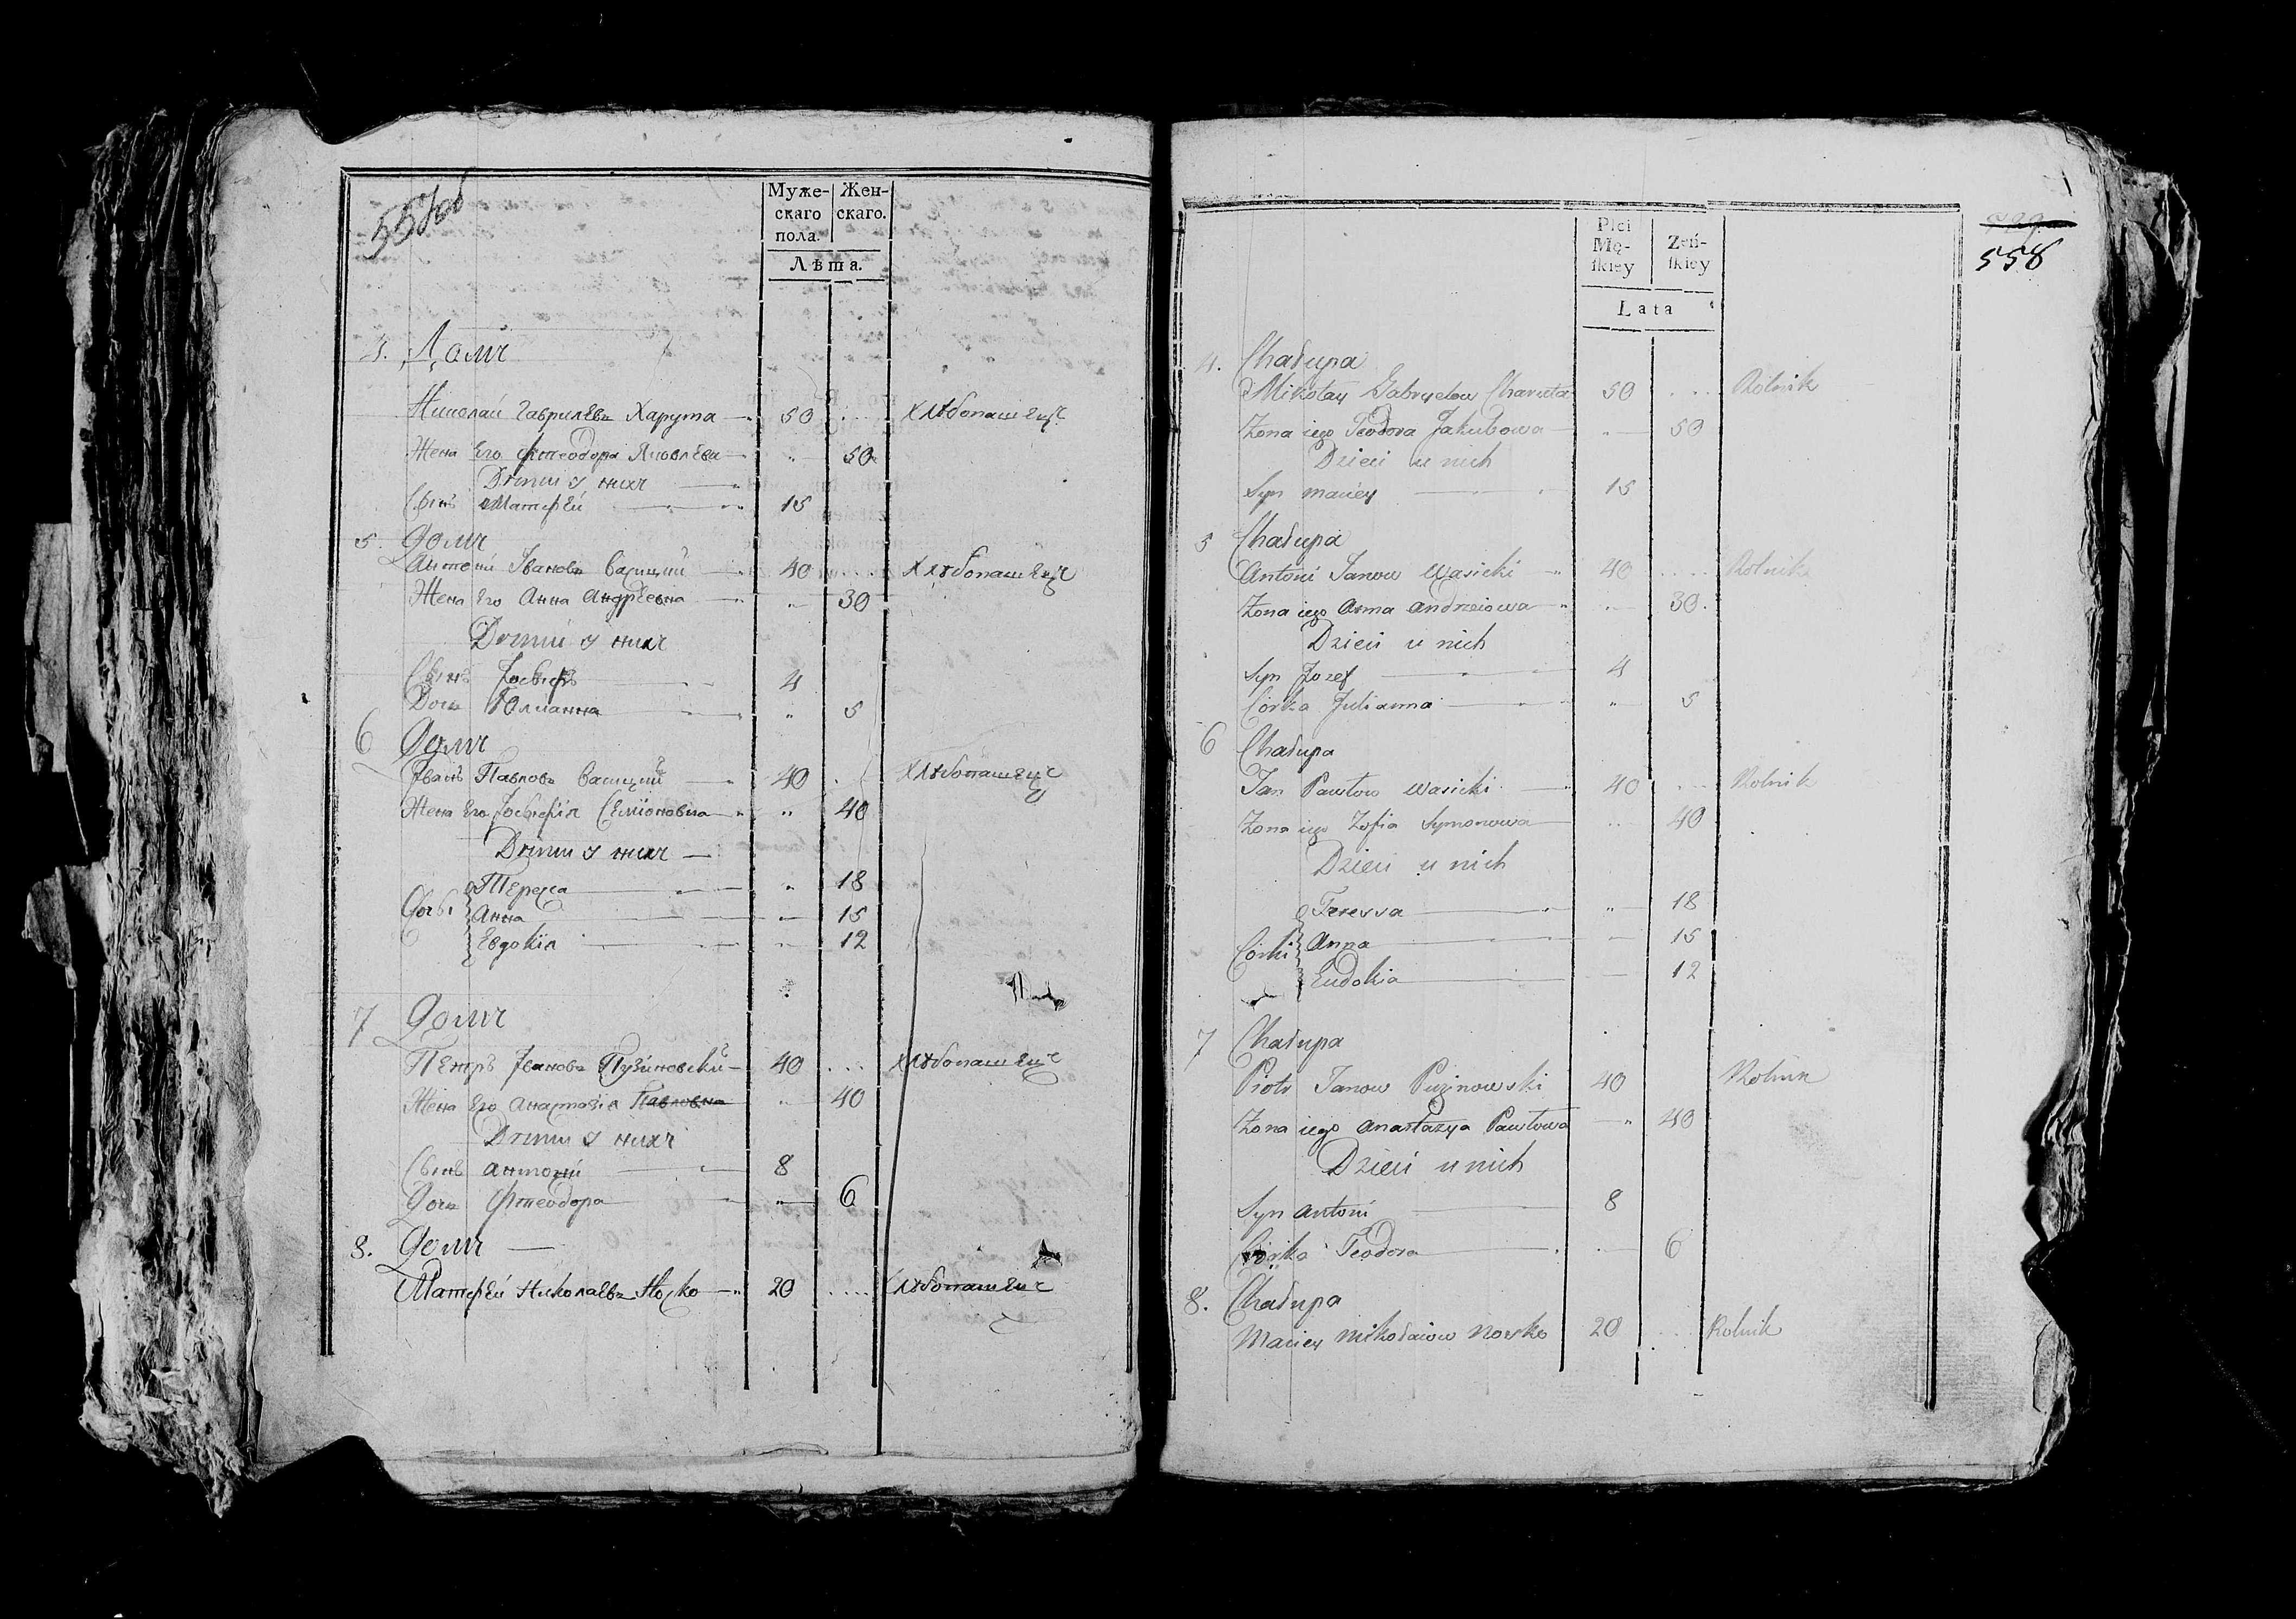 557об
Муже- Жен-
скаго скаго.
пола.
Лѣта.
4. Домъ
Николай Гаврилевъ Харута 50 .... Хлѣбопашецъ
Жена Его Фтеодора Яковлева " 50
Дѣти у нихъ
Сынъ Матфей 15
5. Домъ
Антоній Ивановъ Васицкий 40 .... Хлѣбопашецъ
Жена Его Анна Андрѣевна " 30
Дѣти у нихъ
Сынъ Іосифъ 4
Дочь Юлианна " 5
6 Домъ
Иванъ Павловъ Васицкий 40 . Хлѣбопашецъ
Жена Его Семіоновна " 40
Дѣти у нихъ
Тереса " 18
Дочьi Анна " 15
Евдокія " 12
7 Домъ
Петръ Ивановъ Пузиновский 40 ... Хлѣбопашецъ
Жена Его Анастазія Павловна " 40
Дѣти у нихъ
Сынъ Антоній 8
Дочь Фтеодора " 6
8. Домъ
Матфей Николаевъ Носко 20 .... Хлѣбопашецъ
558
Płci
Mę- Żeń-
ſkiey ſkiey
Lata
4. Chałupa
Mikołay Gabryelow Charuta 50 .... Rolnik
Zona iego Teodora Jakubowa " 50
Dzieci u nich
Syn Maciey 15
5 Chałupa
Antoni Janow Wasicki 40 .... Rolnik
Zona iego Anna Andrzeiowa " 30.
Dzieci u nich
Syn Jozef 4
Córka Julianna " 5
6 Chałupa
Jan Pawłow Wasicki 40 ... Rolnik
Zona iego Zofia Symonowa " 40
Dzieci u nich
Teressa " 18
Córki Anna 15
Eudokia 12
7 Chałupa
Piotr Janow Puzinowski 40 Rolnik
Zona iego Anastazya Pawłowa " 40
Dzieci u nich
Syn Antoni 8
Córka Teodora 6
8. Chałupa
Maciey Mikołaiow Nosko 20 Rolnik